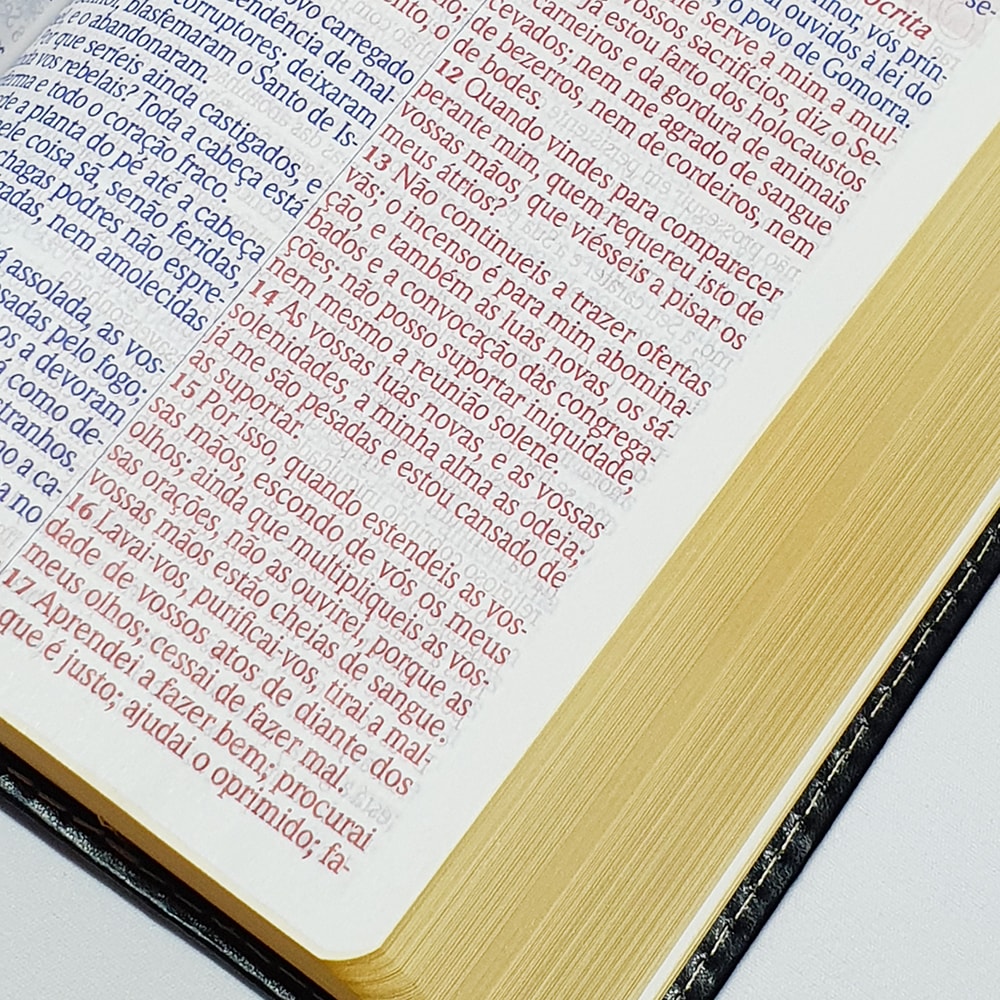 ovo carregado
endência de mal-
corruptores; deixaram
blasfemaram o Santo de Is-
e o abandonaram.
que seríeis ainda castigados, e
vos rebelais? Toda a cabeça está
e todo o coração fraco.
a planta do pé até a cabeça
coisa sã, senão feridas,
chagas podres não espre-
nem amolecidas
assolada, as vos-
pelo fogo;
a devoram
como de-
no
ócrita
se-
nhor, vós prín-
ouvidos à lei do
o povo de Gomorra.
me serve a mim a mul-
vossos sacrifícios, diz o Se-
já estou farto dos holocaustos
carneiros e da gordura de animais
cevados; nem me agrado de sangue
de bezerros, nem de cordeiros, nem
de bodes.
12 Quando vindes para comparecer
perante mim, quem requereu isto de
vossas mãos, que viésseis a pisar os
meus átrios?
13 Não continueis a trazer ofertas
vãs; o incenso é para mim abomina-
ção, e também as luas novas, os sá-
bados e a convocação das congrega-
ções; não posso suportar iniquidade,
nem mesmo a reunião solene.
14 As vossas luas novas, e as vossas
solenidades, a minha alma as odeia;
já me são pesadas e estou cansado de
as suportar.
15 Por isso, quando estendeis as vos-
sas mãos, escondo de vós os meus
olhos; ainda que multipliqueis as vos-
sas orações, não as ouvirei, porque as
vossas mãos estão cheias de sangue.
16 Lavai-vos, purificai-vos, tirai a mal-
dade de vossos atos de diante dos
meus olhos; cessai de fazer mal.
17 Aprendei a fazer bem; procurai
que é justo; ajudai o oprimido; fa-